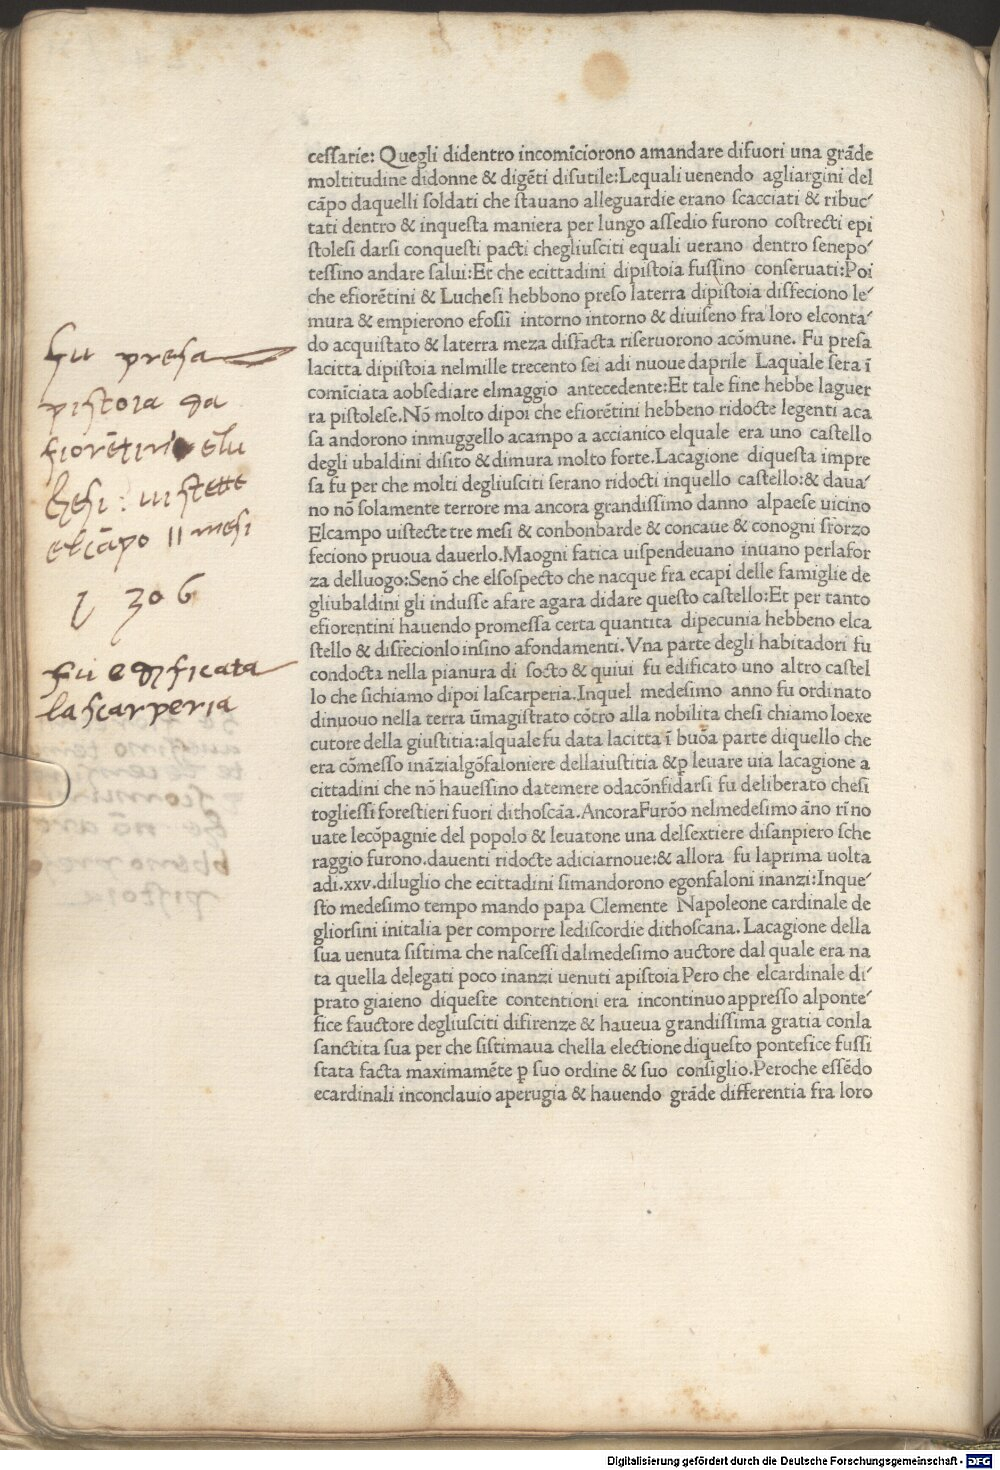 ceſſarie: Quegli didentro incomīciorono amandare difuori una grāde
moltitudine didonne & digēti diſutile:Lequali uenendo agliargini del
cāpo daquelli ſoldati che ſtauano alleguardie erano ſcacciati & ribuc-
tati dentro & inqueſta maniera per lungo aſſedio furono coſtrecti epi
ſtoleſi darſi conqueſti pacti chegliuſciti equali uerano dentro ſenepo-
teſſino andare ſalui:Et che ecittadini dipiſtoia fuſſino conſeruati:Poi
che efiorētini & Lucheſi hebbono preſo laterra dipiſtoia disfeciono le-
mura & empierono efoſſi intorno intorno & diuiſeno fra loro elconta-
do acquiſtato & laterra meza disfacta riſeruorono acōmune. Fu preſa
lacitta dipiſtoia nelmille trecento ſei adi nuoue daprile Laquale ſera ī
comīciata aobſediare elmaggio antecedente:Et tale fine hebbe laguer
ra piſtoleſe.Nō molto dipoi che efiorētini hebbeno ridocte legenti aca
ſa andorono inmuggello acampo a accianico elquale era uno caſtello
degli ubaldini diſito & dimura molto forte.Lacagione diqueſta impre
ſa fu per che molti degliuſciti ſerano ridocti inquello caſtello:& daua-
no nō ſolamente terrore ma ancora grandiſſimo danno alpaeſe uicino
Elcampo uiſtecte tre meſi & conbonbarde & concaue & conogni sforzo
feciono pruoua dauerlo.Maogni fatica uiſpendeuano inuano perlafor
za delluogo:Senō che elſoſpecto che nacque fra ecapi delle famiglie de
gliubaldini gli induſſe afare agara didare queſto caſtello:Et per tanto
efiorentini hauendo promeſſa certa quantita dipecunia hebbeno elca
ſtello & disfecionlo inſino afondamenti.Vna parte degli habitadori fu
condocta nella pianura di ſocto & quiui fu edificato uno altro caſtel
lo che ſichiamo dipoi laſcarperia.Inquel medeſimo anno fu ordinato
dinuouo nella terra ūmagiſtrato cōtro alla nobilita cheſi chiamo loexe
cutore della giuſtitia:alquale fu data lacitta ī buōa parte diquello che
era cōmeſſo ināzialgōfaloniere dellaiuſtitia &ꝑ leuare uia lacagione a
cittadini che nō haueſſino datemere odacōnfidarſi fu deliberato cheſi
toglieſſi foreſtieri fuori dithoſcāa.AncoraFurōo nelmedeſimo āno rīno
uate lecōpagnie del popolo & leuatone una delſextiere diſanpiero ſche
raggio furono.dauenti ridocte adiciarnoue:& allora fu laprima uolta
adi.xxv.diluglio che ecittadini ſimandorono egonfaloni inanzi:Inque-
ſto medeſimo tempo mando papa Clemente Napoleone cardinale de
gliorſini initalia per comporre lediſcordie dithoſcana. Lacagione della
ſua uenuta ſiſtima che naſceſſi dalmedeſimo auctore dal quale era na
ta quella delegati poco inanzi uenuti apiſtoia Pero che elcardinale di-
prato giaieno diqueſte contentioni era incontinuo appreſſo alponte-
fice fauctore degliuſciti difirenze & haueua grandiſſima gratia conla
ſanctita ſua per che ſiſtimaua chella electione diqueſto pontefice fuſſi
ſtata facta maximamēte ꝑ ſuo ordine & ſuo conſiglio.Peroche eſſēdo
ecardinali inconclauio aperugia & hauendo grāde differentia fra loro
fu preſa
piſtoia da
fiorētini elu
cheſi: uiſtette
elcāpo 11 meſi
1306
fu edificata
laſcarperia
Digitalisierung gefördert durch die Deutsche Forschungsgemeinschaft - DFG